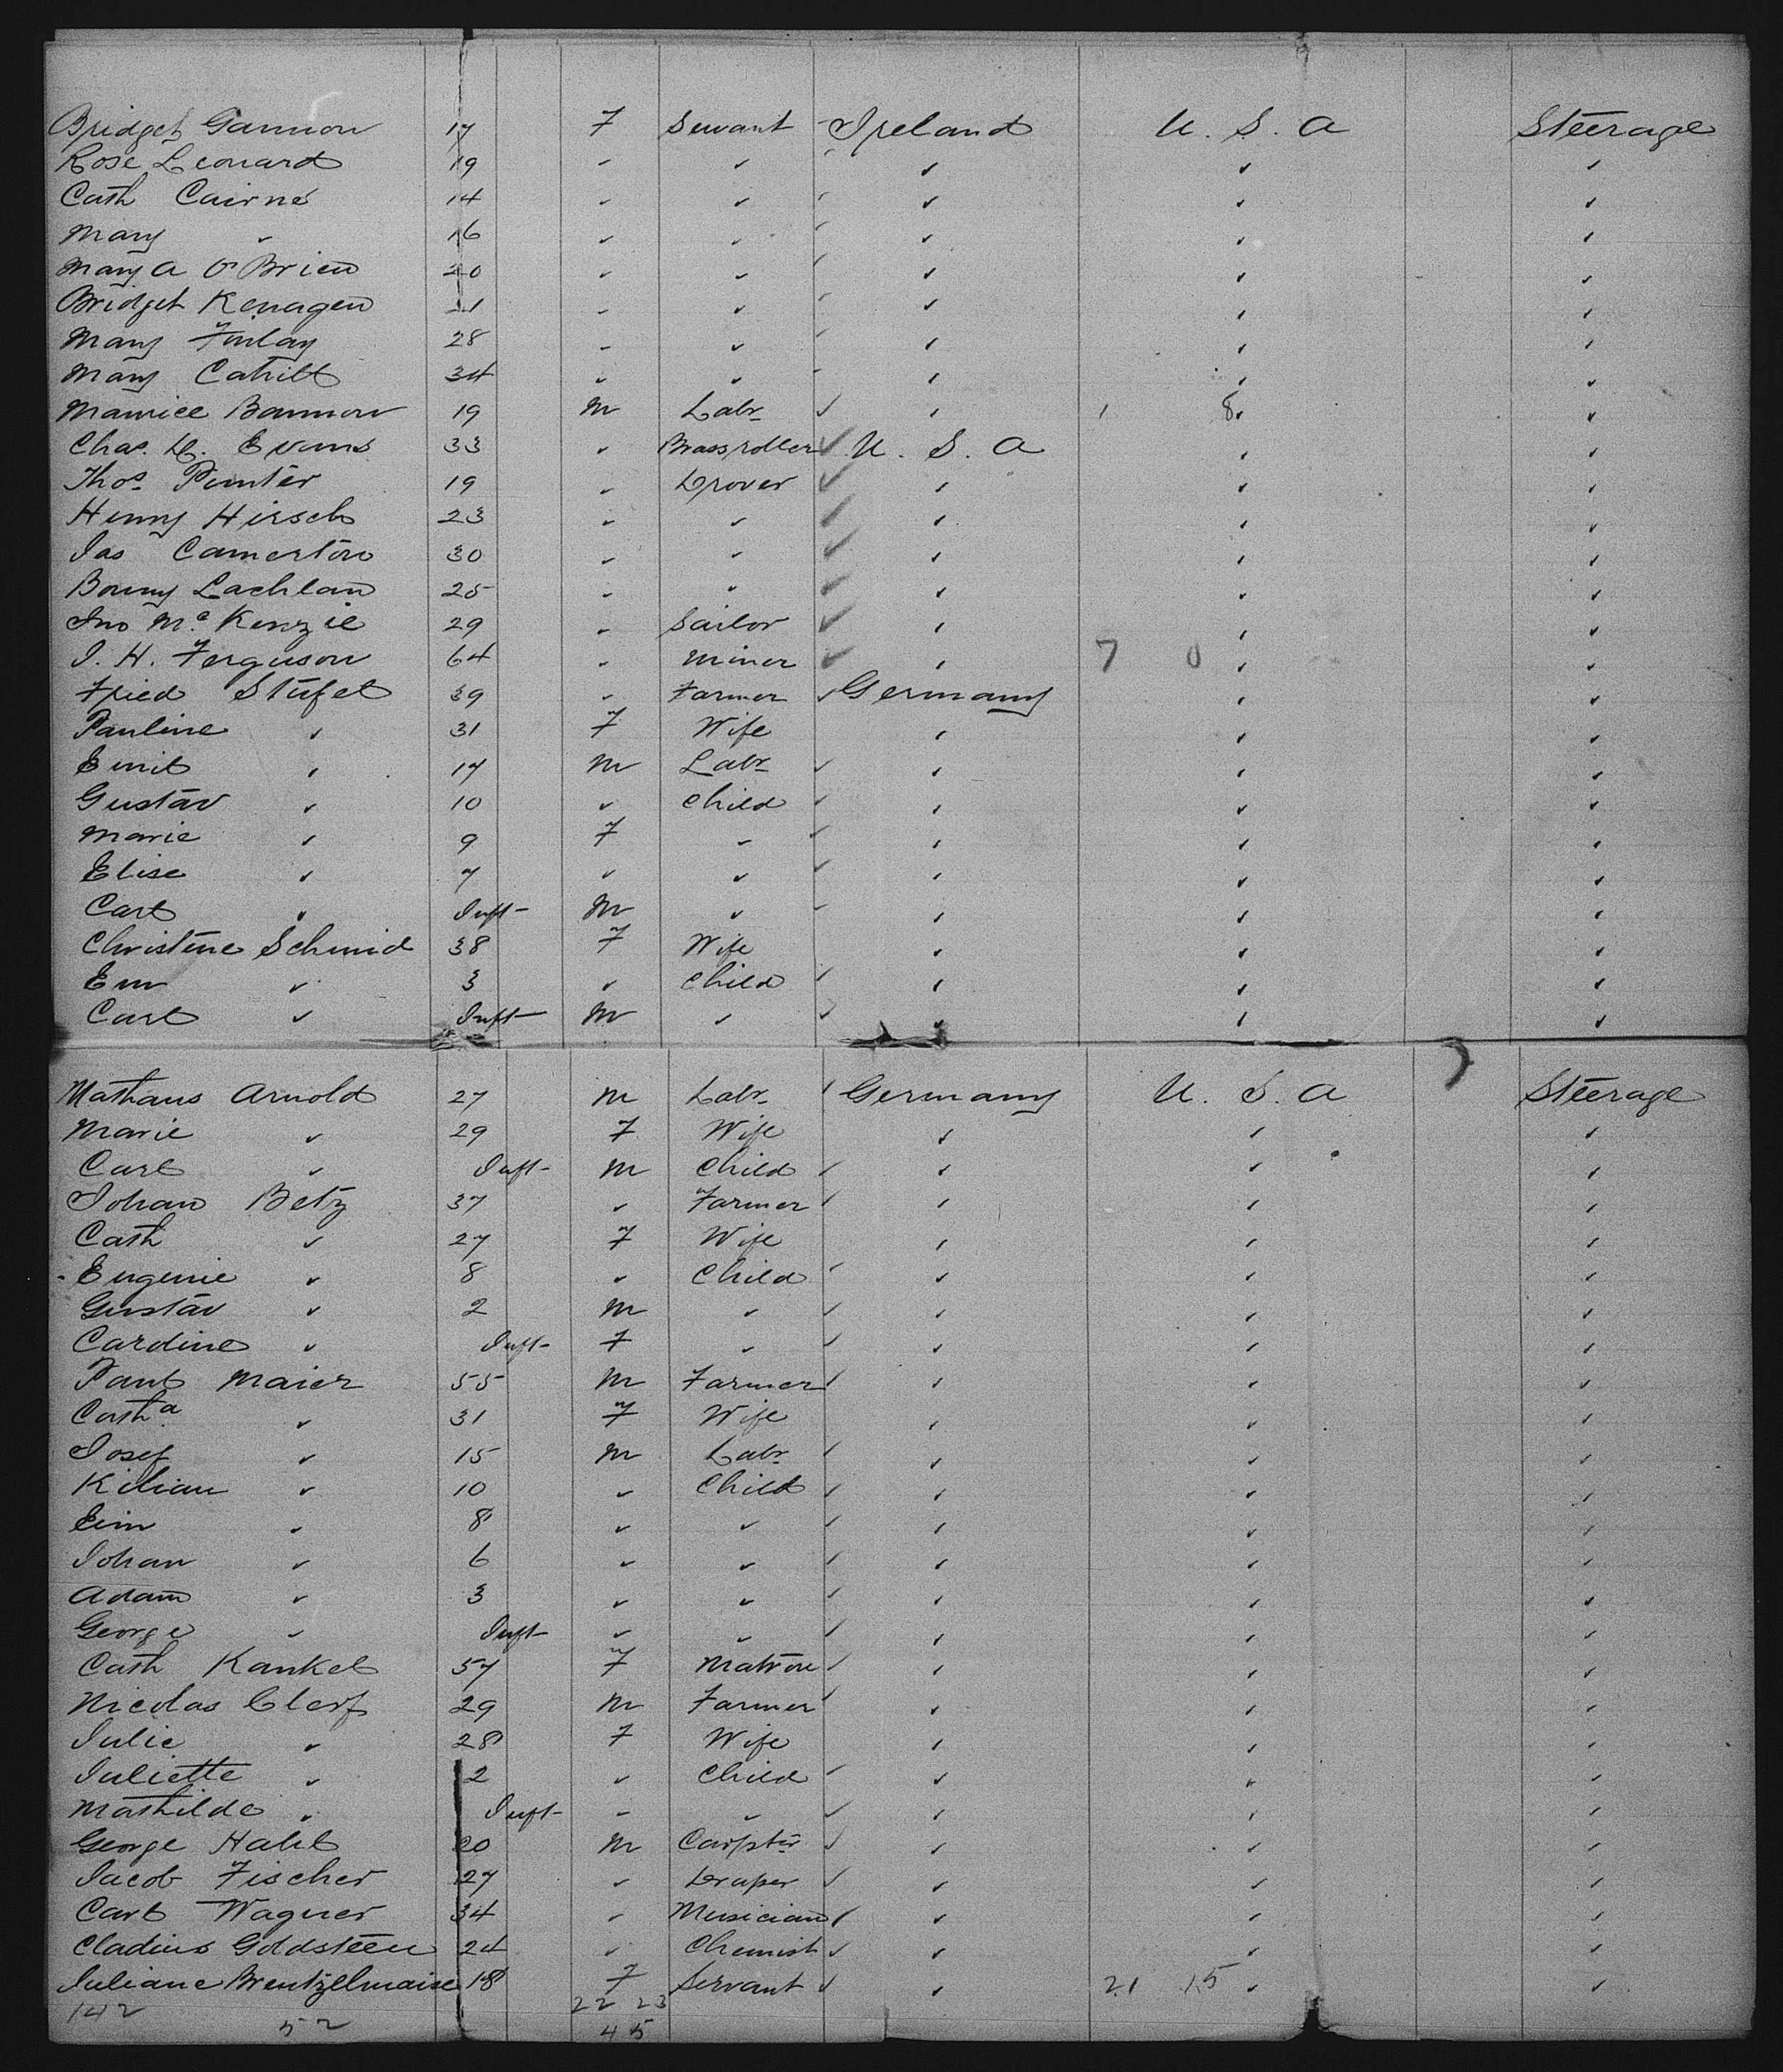 Bridget Gannon 17 F Servant Ireland U. S. A Steerage
Rose Leonard 19 " " " " "
Cath Cairns 14 " " " " "
Mary " 16 " " " " "
Mary A O'Brien 20 " " " " "
Bridget Kenagen 21 " " " " "
Mary Finlay 28 " " " " "
Mary Cahill 34 " " " " "
Maurice Bannon 19 M Labr " 1 8 " "
Chas. H. Evans 33 " Brassroller U. S. A " "
Thos Punter 19 " Drover " " "
Henry Hirsch 23 " " " " "
Jas Camerton 30 " " " " "
Bonny Lachlan 25 " " " " "
Jno McKenzie 29 " Sailor " " "
J. H. Ferguson 64 " Miner " 7 0 " "
Fried Stufel 39 " Farmer Germany " "
Pauline " 31 F Wife " " "
Emil " 17 M Labr " " "
Gustav " 10 " Child " " "
Marie " 9 F " " " "
Elise " 7 " " " " "
Carl " Inft M " " " "
Christine Schmid 38 F Wife " " "
Em " 3 " Child " " "
Carl " Inft M " " " "
Mathaus Arnold 27 M Labr Germany U. S. A Steerage
Marie " 29 F Wife " " "
Carl " Inft M Child " " "
Johan Betz 37 " Farmer " " "
Cath " 27 F Wife " " "
Eugenie " 8 " Child " " "
Gustav " 2 M " " " "
Caroline " Inft F " " " "
Paul Maier 55 M Farmer " " "
Catha " 31 F Wife " " "
Josef " 15 M Labr " " "
Kilian " 10 " Child " " "
" 8 " " " " "
Johan " 6 " " " " "
Adam " 3 " " " " "
George " Inft " " " " "
Cath Kankel 57 F Matron " " "
Nicolas Clerf 29 M Farmer " " "
Julie " 28 F Wife " " "
Juliette " 2 " Child " " "
Mathilde " Inft " " " " "
George Hahl 20 M Carptr " " "
Jacob Fischer 27 " Draper " " "
Carl Wagner 34 " Musician " " "
Cladius Goldsteen 24 " Chemist " " "
Juliane Brentzelmaise 18 F Servant " 21 15 " "
142 52 22 23
45